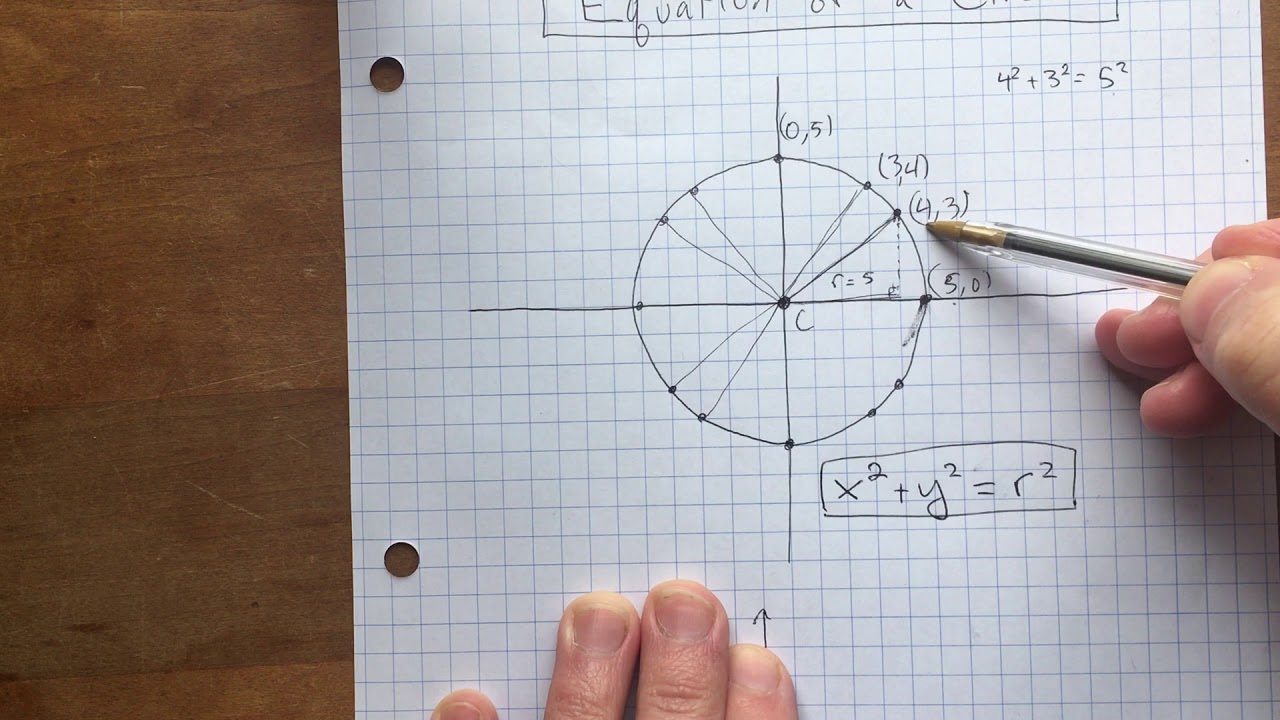 Equation of a
4² + 3² = 5²
(0,5)
(3,4)
(4,3)
r = 5
(5,0)
C
x² + y² = r²